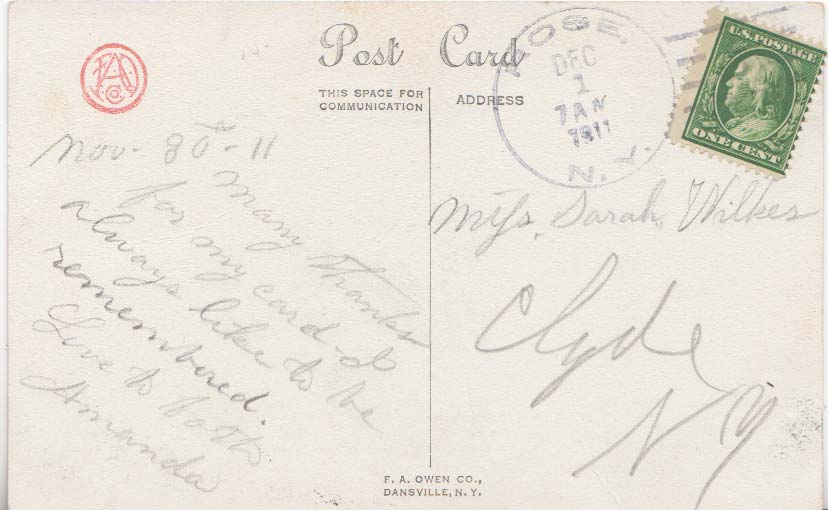 Post Card
THIS SPACE FOR
COMMUNICATION
ADDRESS
ROSE,
DEC
1
7 AM
1911
N.Y.
U.S. POSTAGE
ONE CENT
Nov- 30 - 11
Many thanks
for my card - I
always like to be
remembered.
Love to both
Amanda
Miss, Sarah, Wilkes
Clyde
N Y
F. A. OWEN CO.,
DANSVILLE, N. Y.